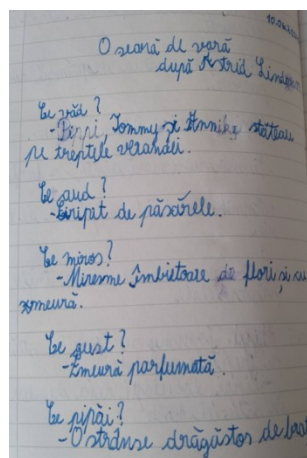 O seară de vară
după Astrid
Ce văd?
- Pippi, Tommy și Annika stăteau
pe treptele verandei.
Ce aud?
- Ciripit de păsărele.
Ce miros?
- Miresme îmbietoare de flori și
zmeură.
Ce gust?
- Zmeură parfumată.
Ce pipăi?
- O strânse drăgăstos de